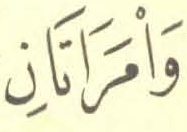 وَاْمَرَاَتَانِ